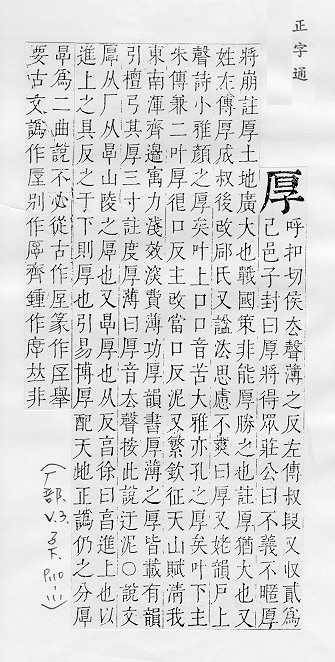 正字通
厚
呼扣切侯去聲薄之反左傳叔段又收貳爲
己邑子封曰厚將得眾莊公曰不義不暱厚
將崩註厚土地廣大也戰國策非能厚勝之也註厚猶大也又
姓左傳厚成叔後改郈氏又諡法思慮不爽曰厚又姥韻戸上
聲詩小雅顏之厚矣叶上口口音苦大雅亦孔之厚矣叶下主
朱傳兼二叶厚很口反主改當口反泥又繁欽征天山賦淸我
東南渾齊邊寓力淺效深費薄功厚韻書厚薄之厚皆載有韻
引檀弓其厚三寸註度厚薄曰厚音去聲按此說迂泥○說文
厚从厂从㫗山陵之厚也又㫗厚也从反亯徐曰亯進上也以
進上之具反之于下則厚也引易博厚配天地正譌仍之分厚
㫗爲二曲說不必從古作垕篆作舉
要古文譌作垕别作齊鍾作𠀤非
(厂部. V.3. 子下 P.110